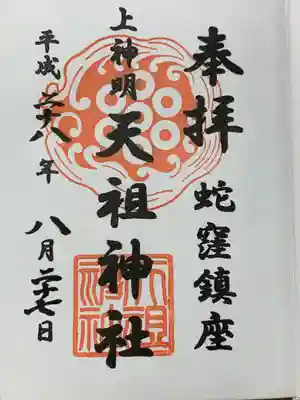 奉拝
蛇窪鎮座
上神明
天祖神社
平成二十八年
八月二十七日
天祖神社